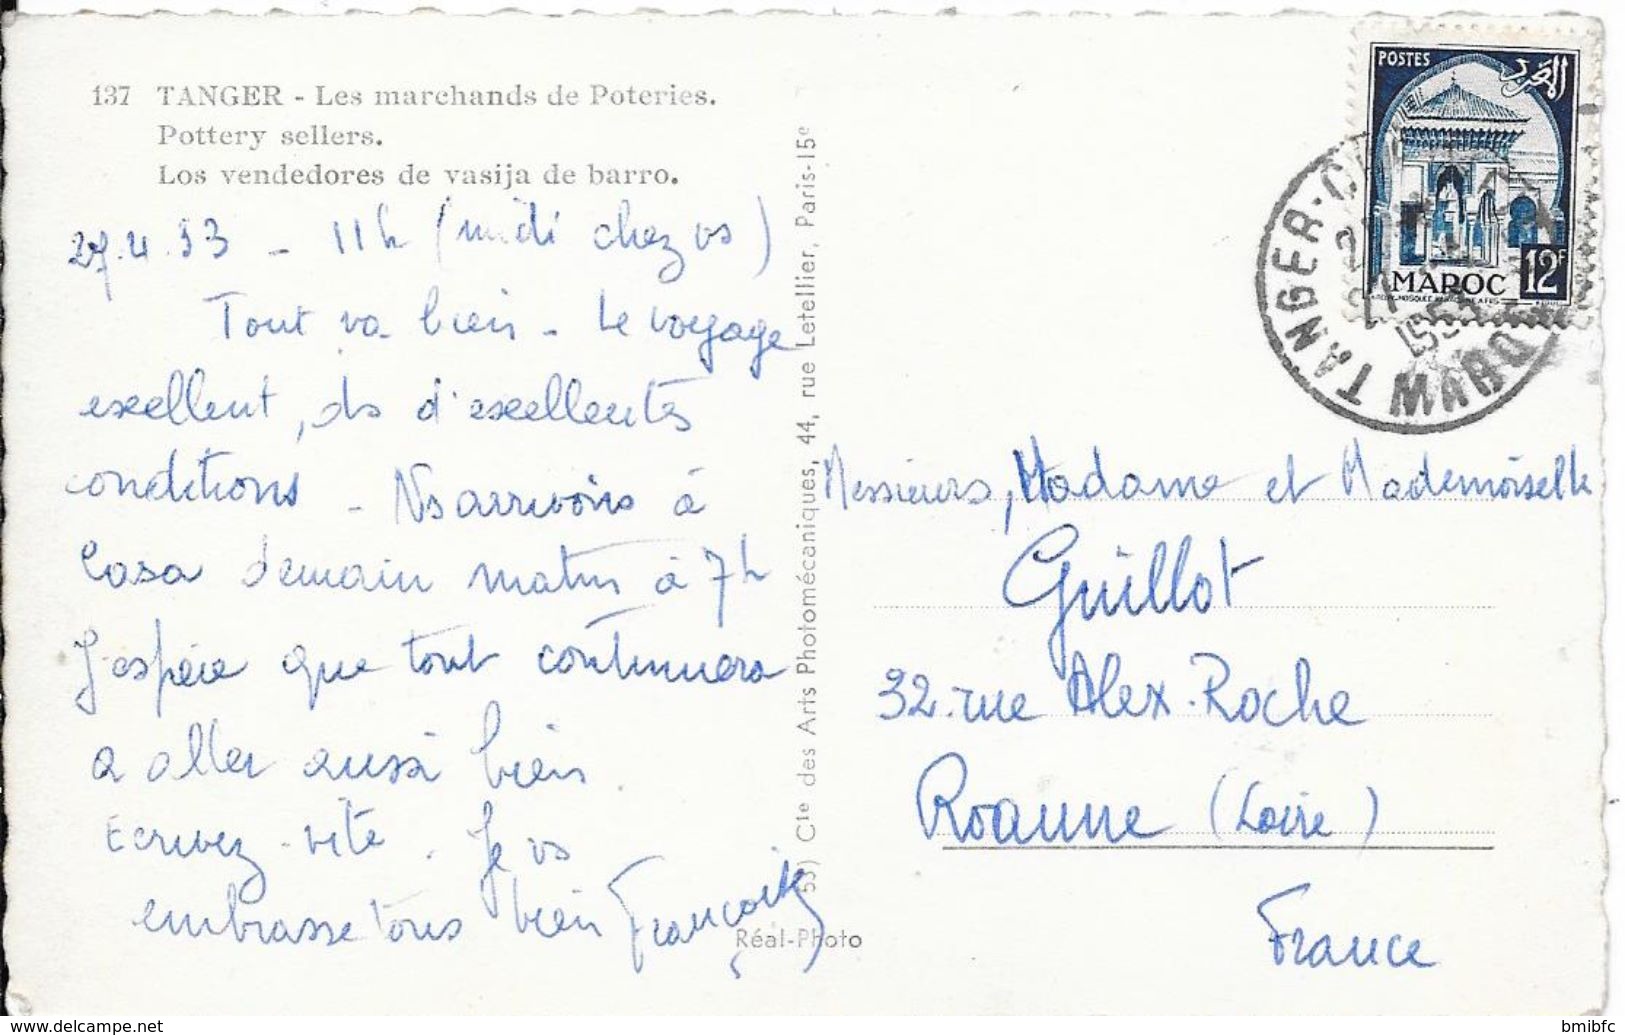 137 TANGER - Les marchands de Poteries.
Pottery sellers.
Los vendedores de vasija de barro.
27.4.53 - 11h (midi chez vs)
Tout va bien - Le voyage
excellent, ds d'excellentes
conditions - Ns arrivons à
Casa demain matin à 7h
J'espère que tout continuera
a aller aussi bien
Ecrivez-vite. Je vs
embrasse tous bien Françoise
53) Cie des Arts Photomécaniques, 44, rue Letellier, Paris-15e
Réal-Photo
POSTES
المغرب
MAROC
12F
TANGER
1953
MAROC
Messieurs, Madame et Mademoiselle
Guillot
32-rue Alex-Roche
Roanne (Loire)
France
https://www.delcampe.net
bmibfc